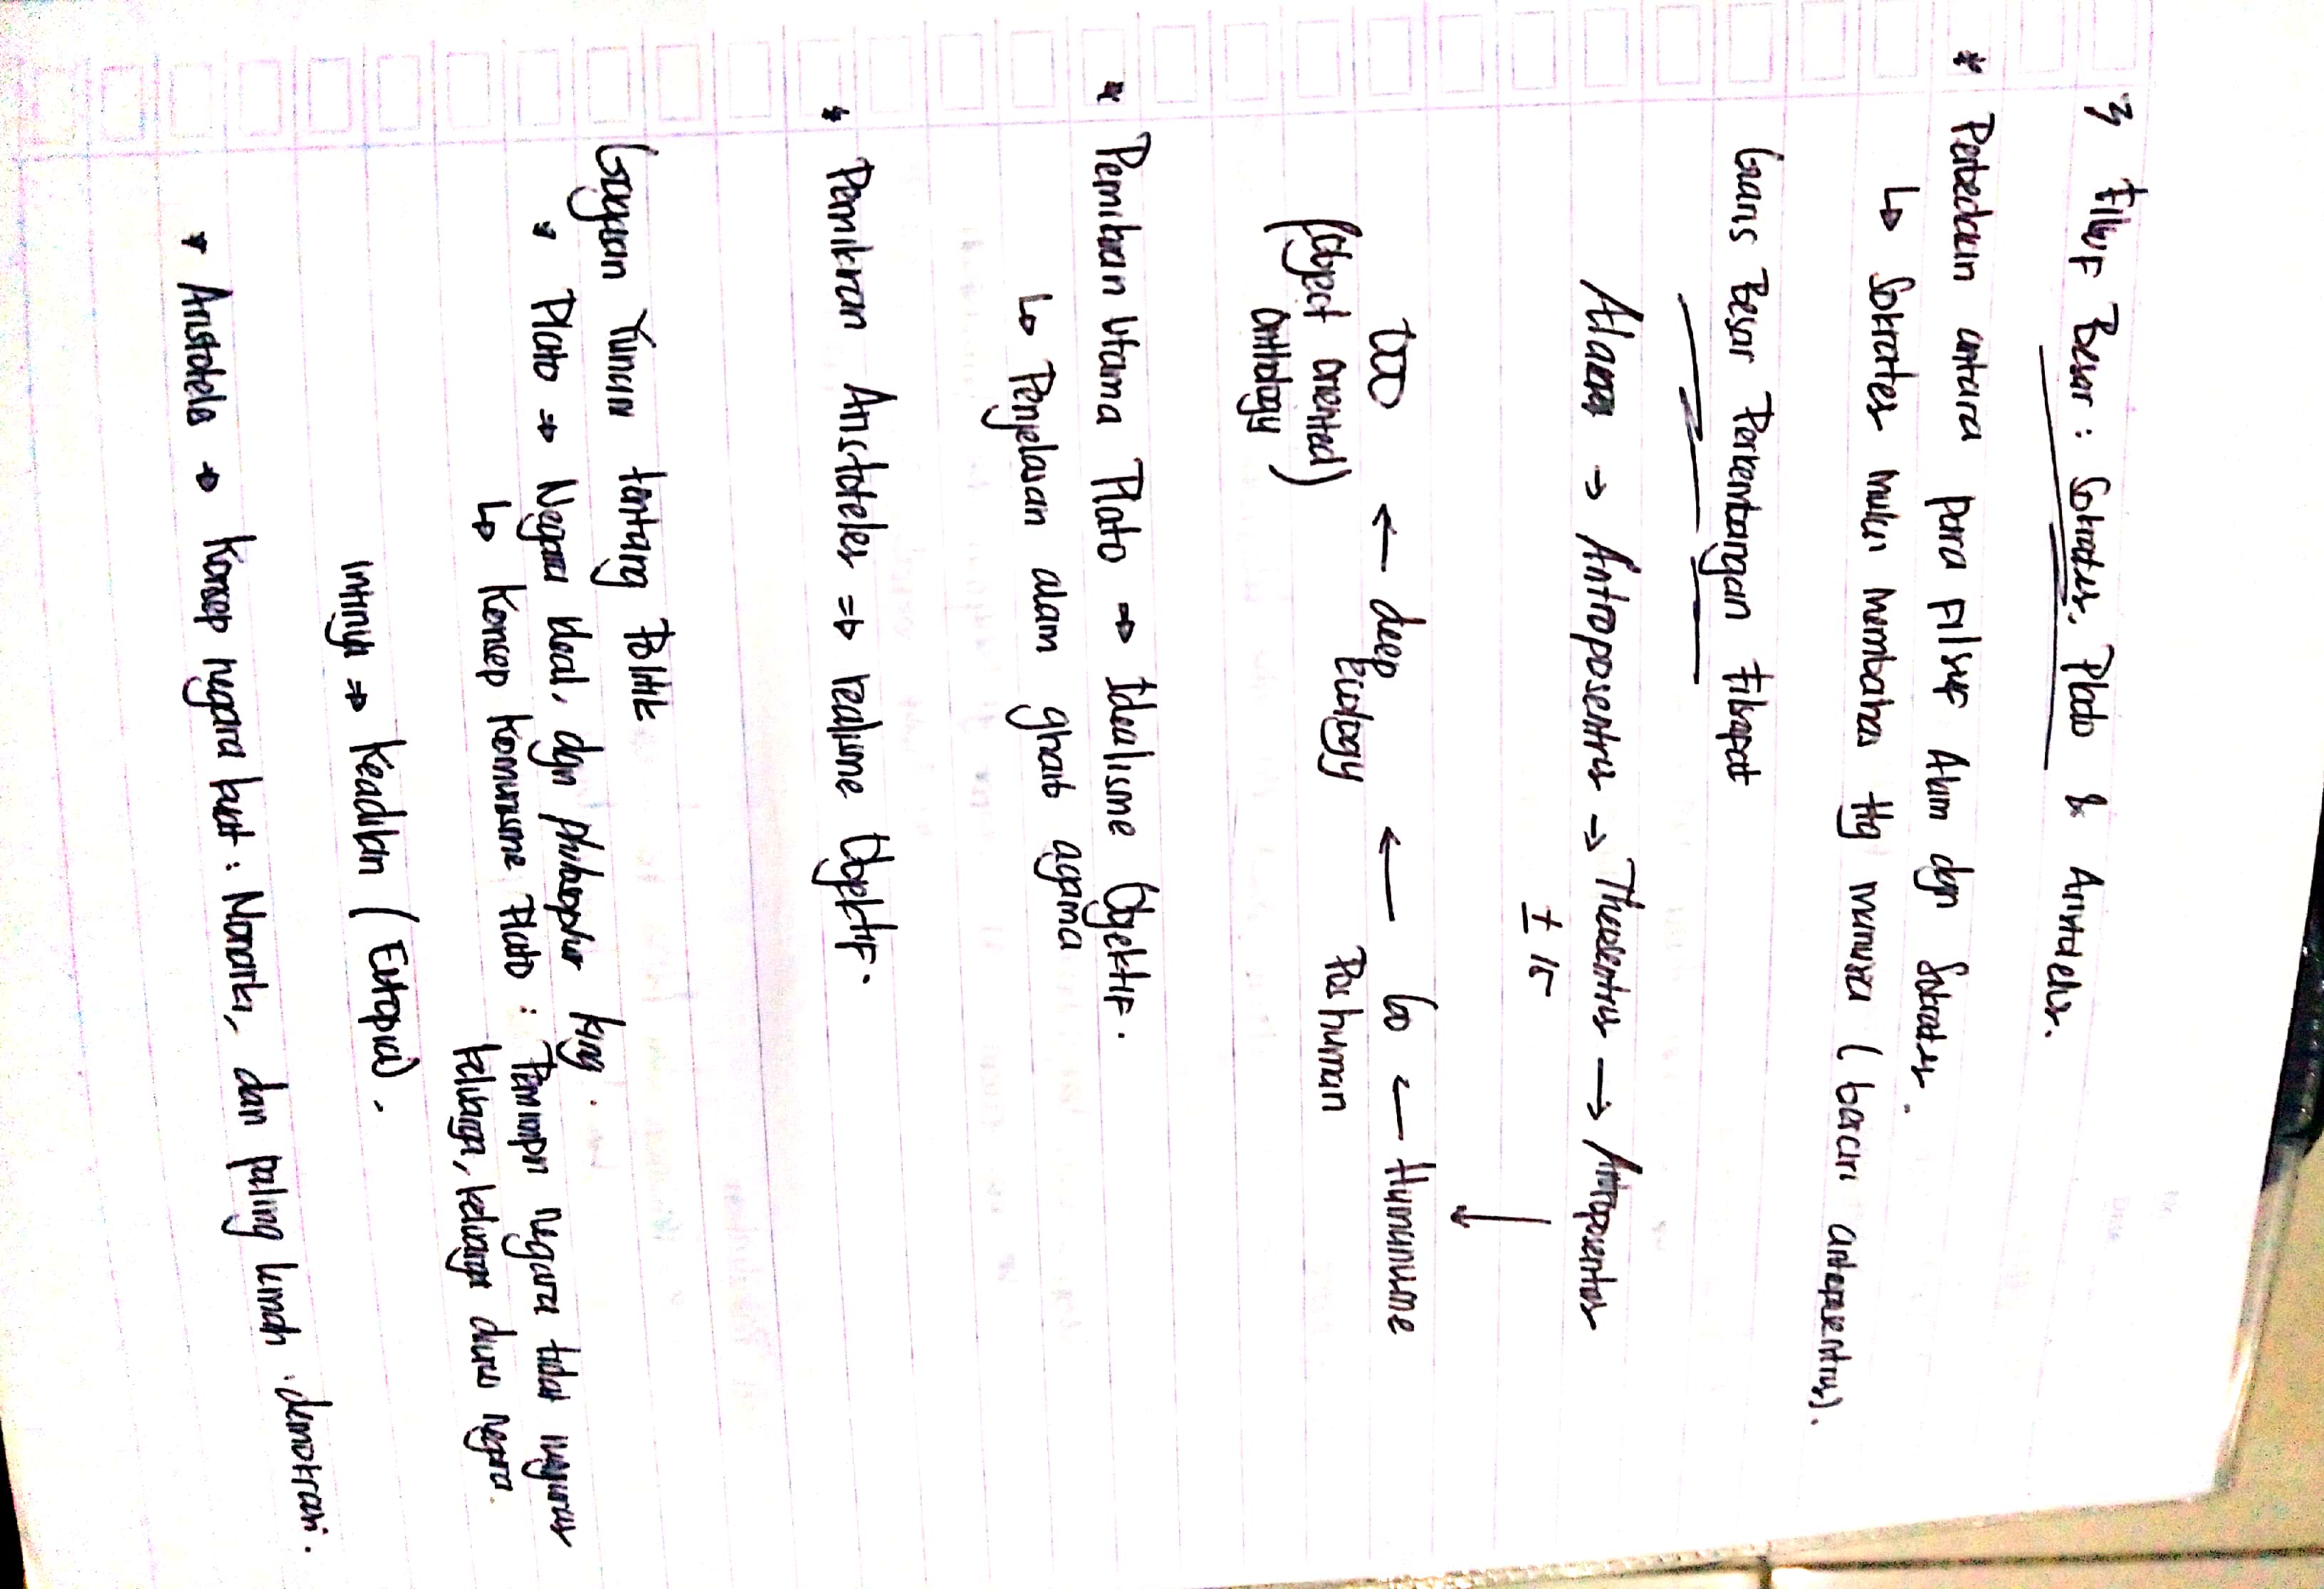 3 Filsuf Besar : Sokrates, Plato & Aristoteles.
* Perbedaan antara para Filsuf Alam dgn Sokrates.
↳ Sokrates mulai membahas ttg manusia (berciri antroposentris).
Garis Besar Perkembangan Filsafat
Alam → Antroposentris → Theosentris → Antroposentris
± 15
OOO ← deep ecology ← 60 ← Humanisme
(Object oriented ontology)
Poshuman
* Pemikiran Utama Plato ⇒ Idealisme Objektif.
↳ Penjelasan alam ghaib agama
* Pemikiran Aristoteles ⇒ realisme Objektif.
Gagasan Yunani tentang Politik
* Plato ⇒ Negara ideal, dgn philosopher king.
↳ Konsep Komunisme Plato : Pemimpin negara tidak mengurus
keluarga, keluarga diurus negara.
Intinya ⇒ Keadilan (Eutopia).
* Aristotele ⇒ Konsep negara kuat : Monarki, dan paling lemah demokrasi.